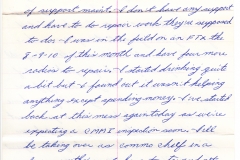 of support maint. I don't have any support
and have to do repair work they're supposed
to do. I was in the field on an FTX the
8-9-10 of this month and have four more
radios to repair. I started drinking quite
a bit but I found out it wasn't helping
anything except spending money. I've started
back at this mess again today as we're
expecting a CMMI inspection soon. I'll
be taking over as commo chief in a